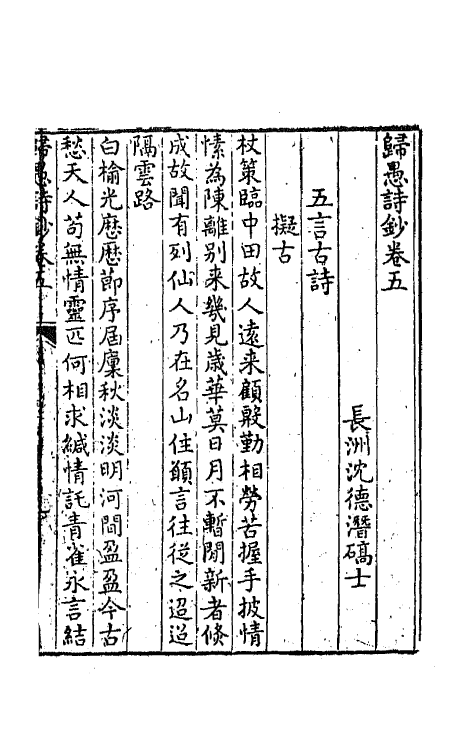 歸愚詩鈔卷五
長洲沈德潛碻士
五言古詩
擬古
杖策臨中田故人遠来顧殷勤相勞苦握手披情
愫為陳離别来幾見歲華莫日月不暫閒新者倐
成故聞有列仙人乃在名山住願言往從之迢迢
隔雲路
白榆光歴歴節序屆凜秋淡淡明河間盈盈今古
愁天人苟無情靈匹何相求緘情託青雀永言結
歸愚詩鈔卷五